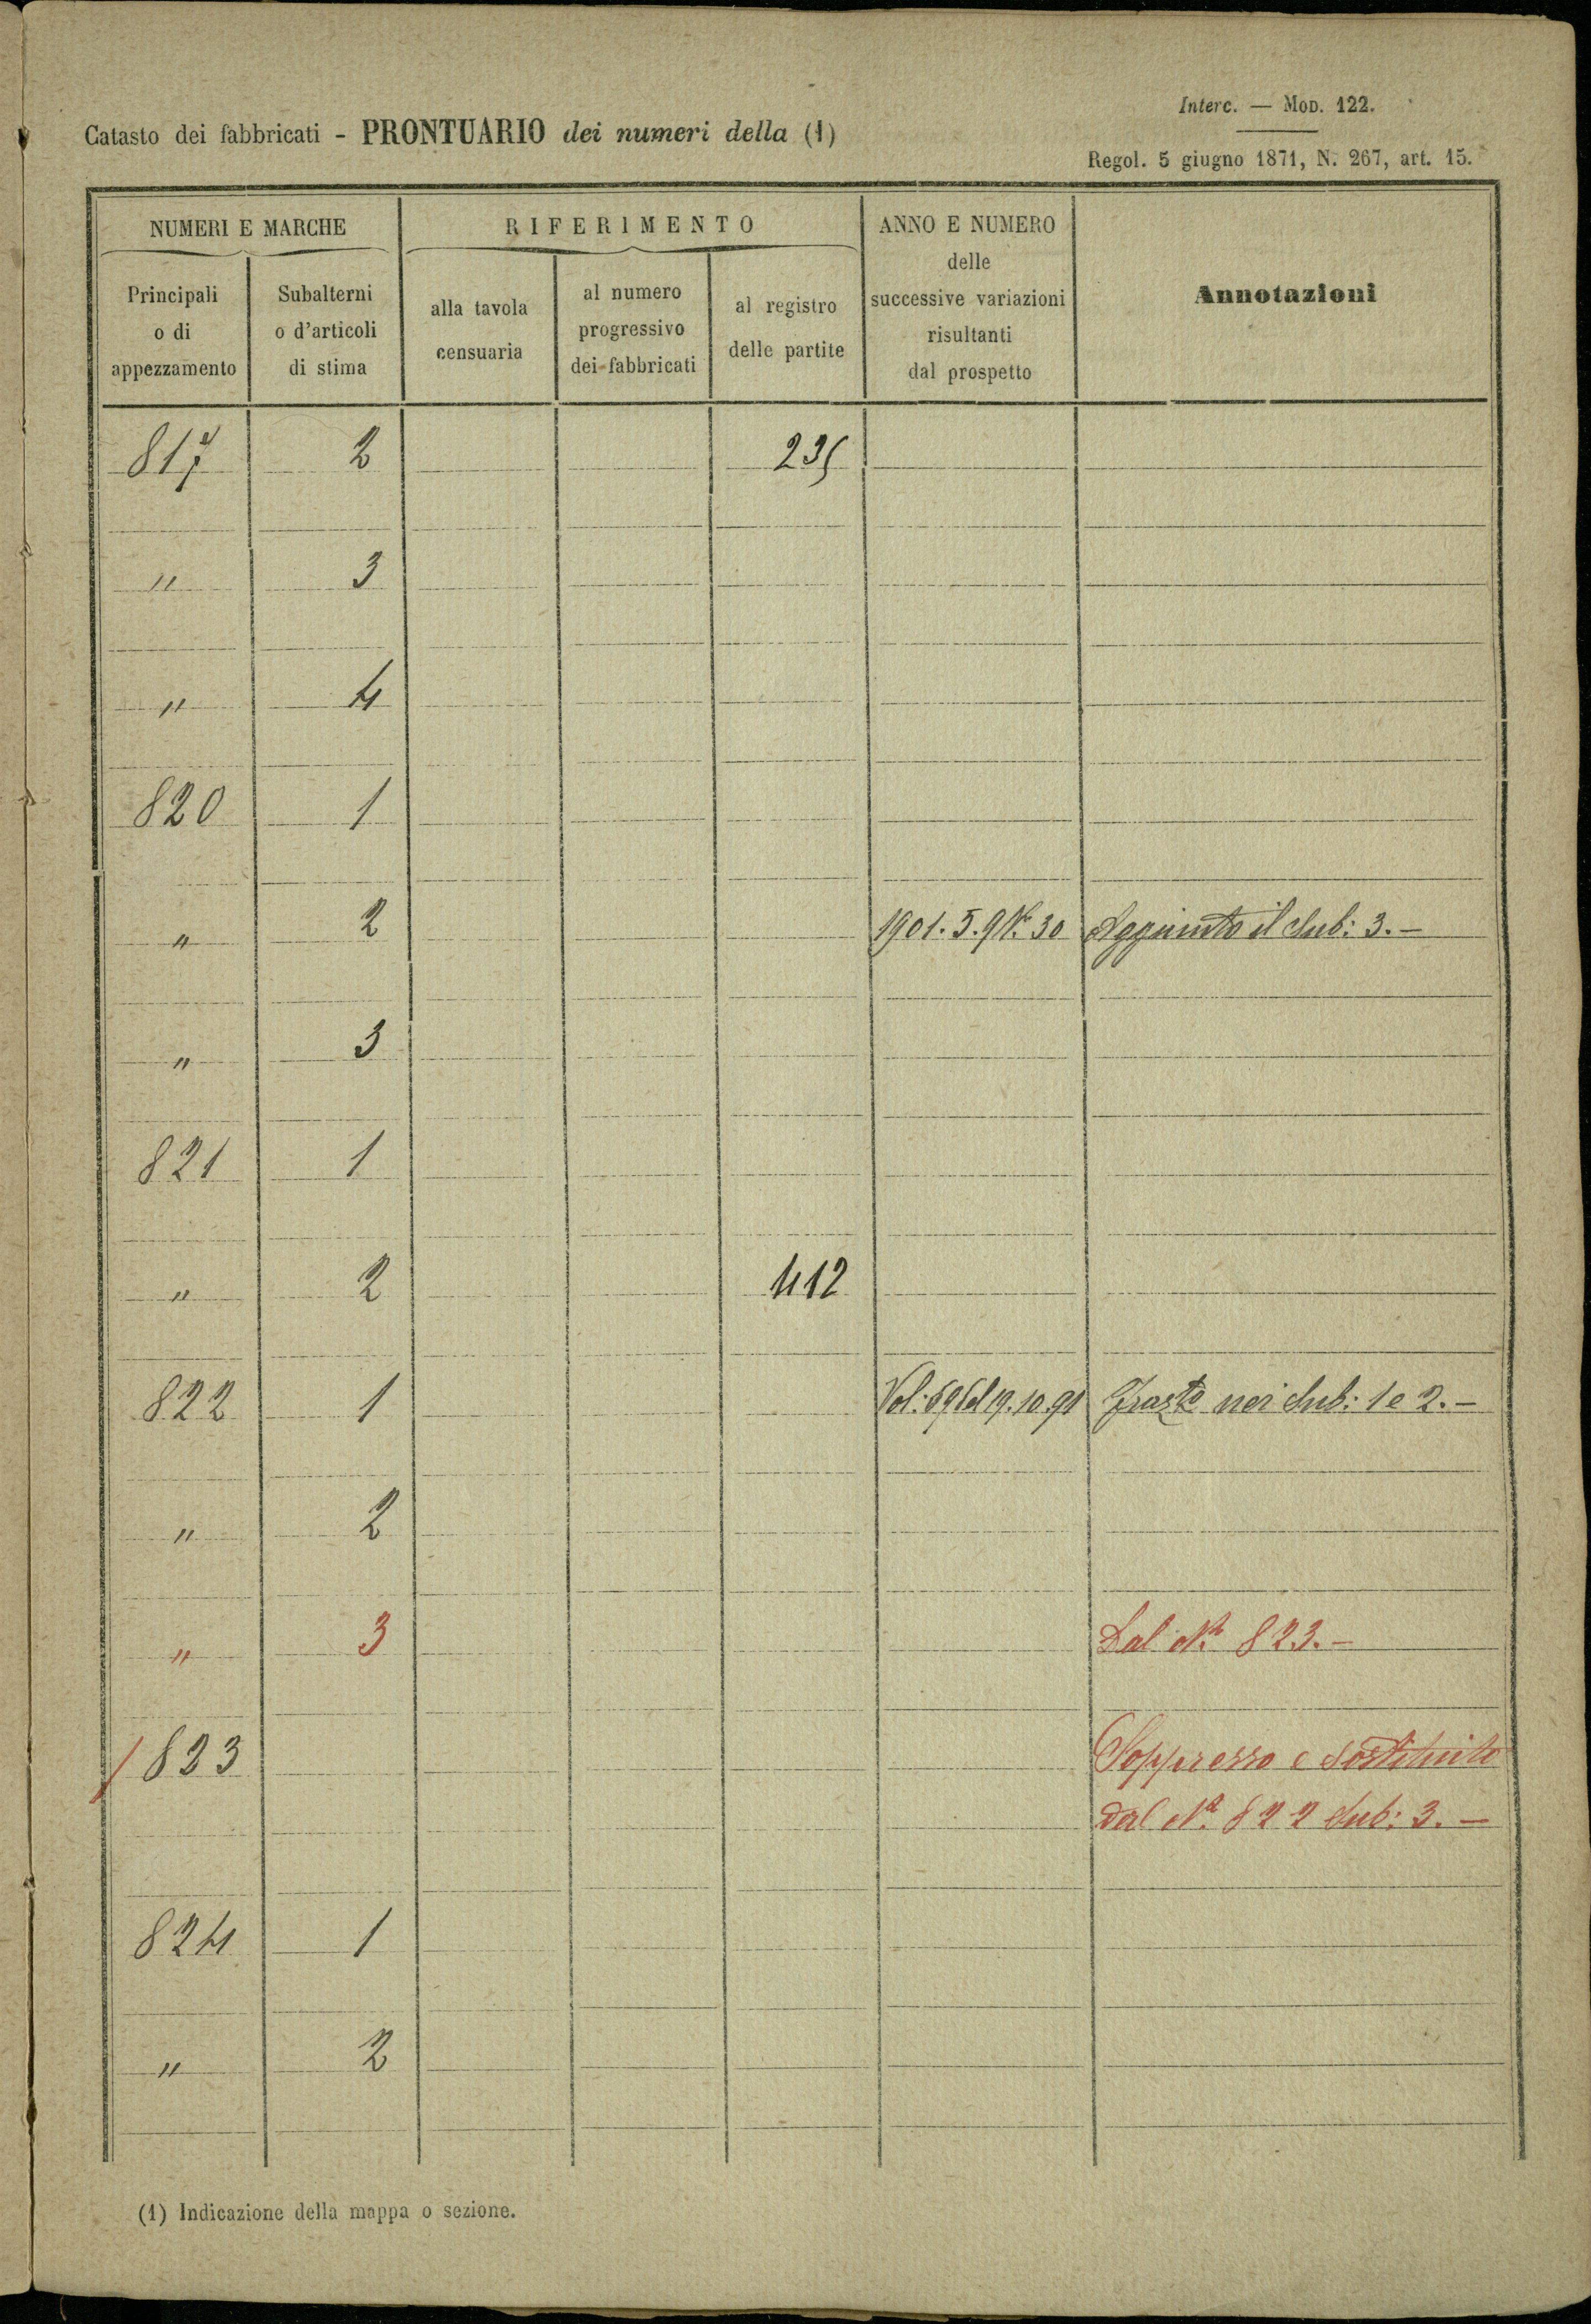 Interc. — Mod. 122.
Catasto dei fabbricati - PRONTUARIO dei numeri della (1)
Regol. 5 giugno 1871, N. 267, art. 15.
NUMERI E MARCHE
RIFERIMENTO
ANNO E NUMERO
delle
successive variazioni
risultanti
dal prospetto
Annotazioni
Principali
o di
appezzamento
Subalterni
o d'articoli
di stima
alla tavola
censuaria
al numero
progressivo
dei fabbricati
al registro
delle partite
817 2 235
" 3
" 4
820 1
" 2 1901. 5. 9 N. 30 Aggiunto il sub: 3. —
" 3
821 1
" 2 412
822 1 Vol: 69 del 19. 10. 91 nei sub: 1 e 2. —
" 2
" 3 Dal N.° 823. —
823 Soppresso e sostituito
dal N.° 822 sub: 3. —
824 1
" 2
(1) Indicazione della mappa o sezione.